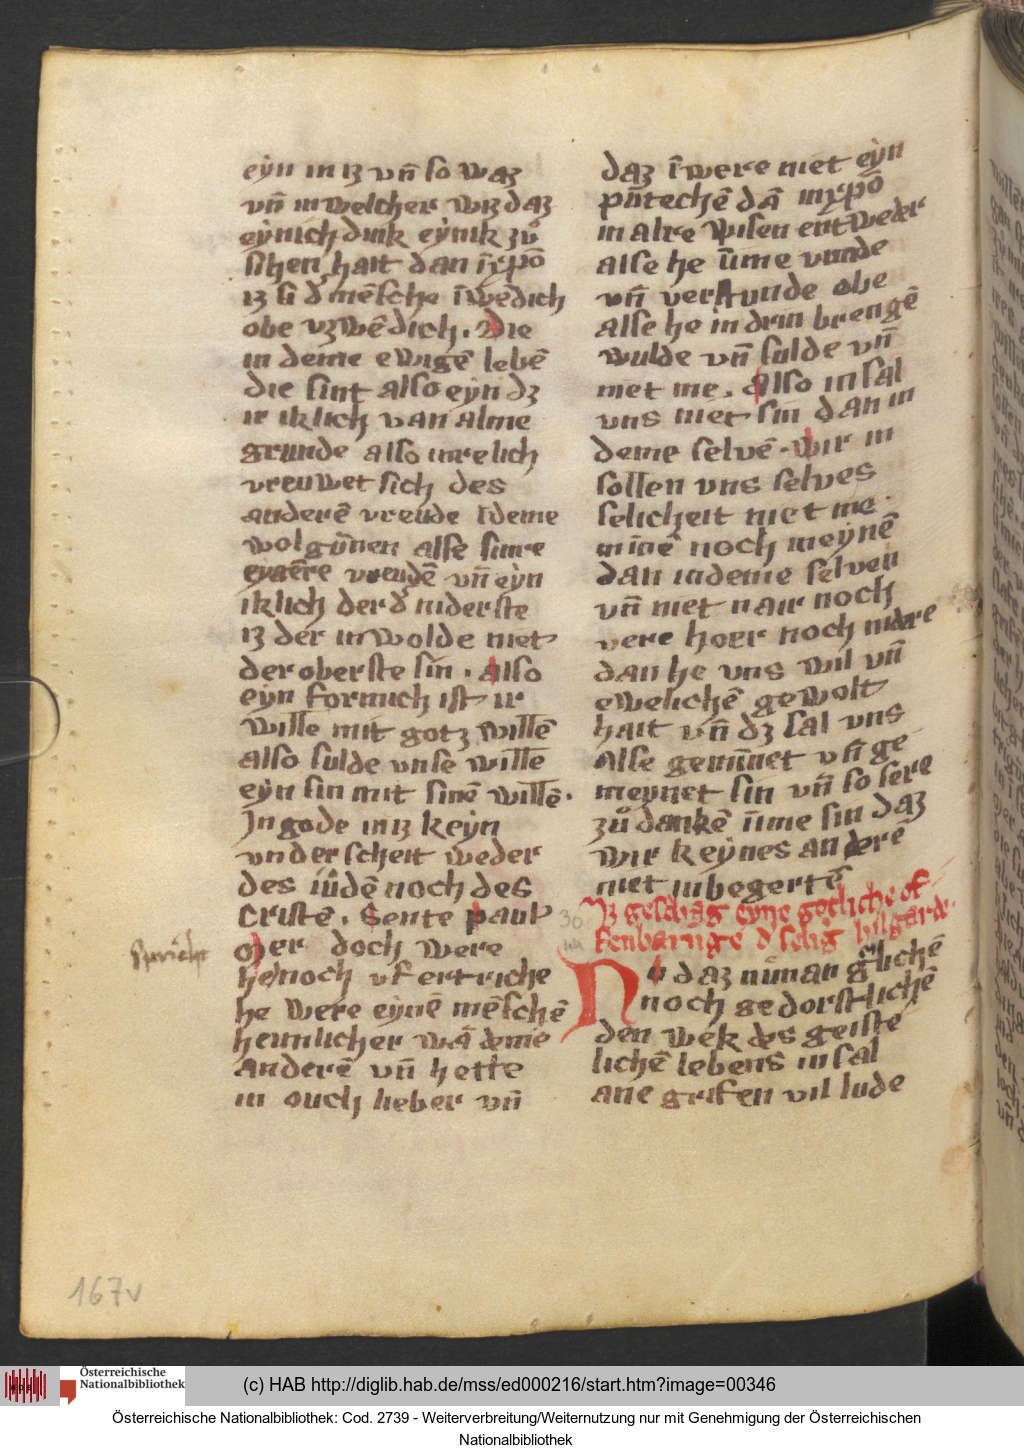 eẏn in iz vn̄ so waz
vn̄ in welcher wiz daz
eẏnich dink eẏnik zuͦ
sihen hait dan in xp̄o
iz si d' mēsche ī wēdich
obe vzwēdich. Die
in deme ewigē lebē
die sint also eyn dz
ir iklich van alme
grunde also inrelich
vreuwet sich des
anderē vreude ī deme
wol guͤnen alse sinre
eygēre vreudē vn̄ eẏn
iklich der d' niderste
iz der in wolde niet
der oberste sin. Also
eyn formich ist ir
wille mit gotz willē
also sulde vnse wille
eẏn sin mit sinē willē.
In gode in iz keẏn
vnderscheit weder
des iuͦdē noch des
Cristē. Sente paul'
Mer doch were
henoch vf ertriche
he were eẏnē mēsche
heimlicher wā deme
anderē vn̄ hette
in ouch lieber vn̄
spricht
daz ī were niet eẏn
pūtechē dā in xp̄o
in alre wisen entweder
alse he ūme vunde
vn̄ verstunde obe
alse he in drin brengē
wulde vn̄ sulde vn̄
niet me. Also in sal
vns niet sin dan in
deme selvē. wir in
sollen vns selves
selicheit niet me
minē noch meẏnē
dan in deme selven
vn̄ niet nair noch
vere hoer noch nidere
dan he vns wil vn̄
ewelichē gewolt
hait vn̄ dz sal vns
alse geminnet vn̄ ge
meynet sin vn̄ so sere
zuͦ dankē īme sin daz
wir keẏnes anderē
niet in begertē
Iz geschrag eyne getliche of
fenbarūge d' selig hilgarde.
30
Nu daz nuͦman g'lichē
noch gedorstlichē
den wek des geiste
lichē lebens in sal
ane grifen vil lude
167v
Österreichische
Nationalbibliothek
(c) HAB http://diglib.hab.de/mss/ed000216/start.htm?image=00346
Österreichische Nationalbibliothek: Cod. 2739 - Weiterverbreitung/Weiternutzung nur mit Genehmigung der Österreichischen
Nationalbibliothek